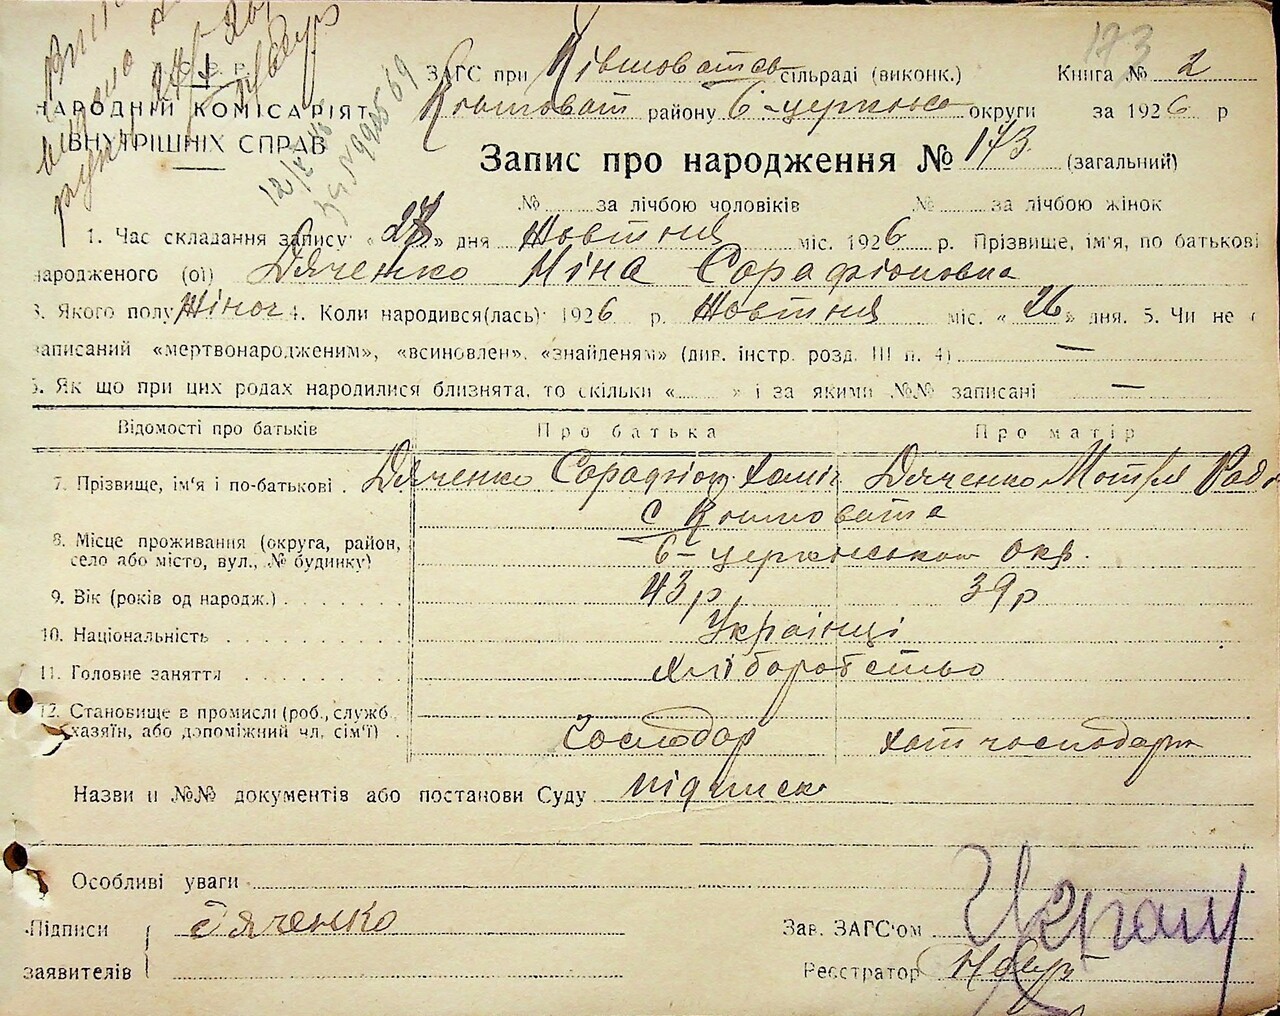 У С Р Р
НАРОДНІЙ КОМІСАРІЯТ
ВНУТРІШНІХ СПРАВ
173
ЗАГС при Ківшоватсь сільраді (виконк.) Книга № 2
Ківшоват району Б-церкько округи за 1926 р
Запис про народження № 173 (загальний)
№ за лічбою чоловіків № за лічбою жінок
1. Час складання запису «27» дня Жовтня міс. 1926 р. Прізвище, ім'я, по батькові
народженого (ої) Дяченко Ніна Сорафіоновна
3. Якого полу Жіноч 4. Коли народився(лась) 1926 р. Жовтня міс. «26» дня. 5. Чи не
записаний «мертвонародженим», «всиновлен», «знайденям» (див. інстр. розд. III п. 4) —
6. Як що при цих родах народилися близнята, то скільки « » і за якими №№ записані —
Відомості про батьків Про батька Про матір
7. Прізвище, ім'я і по-батькові Дяченко Сорафіон Дяченко Мотря
с Ківшовата
8. Місце проживання (округа, район, село або місто, вул., № будинку) Б-церківської окр.
9. Вік (років од народж.) 43 р 39 р
10. Національність Українці
11. Головне заняття хліборобство
12. Становище в промислі (роб., служб, хазяїн, або допоміжний чл. сім'ї) Господар хат господарка
Назви и №№ документів або постанови Суду підписка
Особливі уваги
Підписи Дяченко Зав. ЗАГС'ом
заявителів Реєстратор